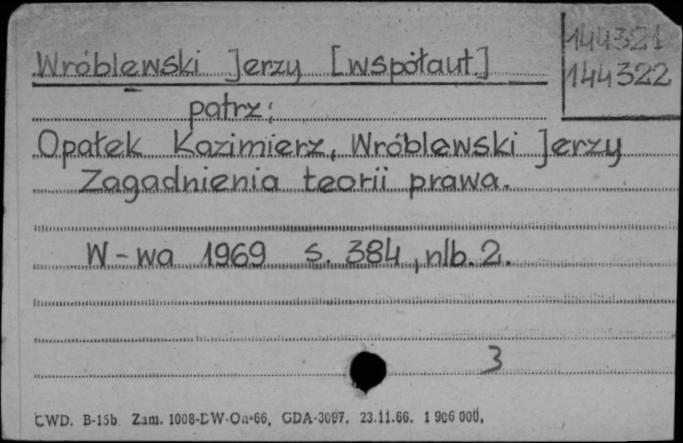 144321
Wróblewski Jerzy [współaut.]
144322
patrz:
Opałek Kazimierz, Wróblewski Jerzy
Zagadnienia teorii prawa.
W-wa 1969 s. 384, nlb. 2.
3
CWD. B-15b. Zam. 1008-DW-Oa-66, GDA-3097. 23.11.66. 1 906 000.